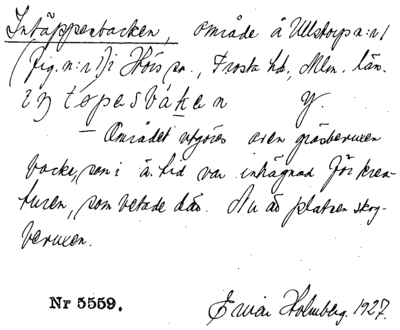 Intäppebacken, område å Ullstorp n:r 1
(fig. n:r 1) i Hörs sn., Frosta hd, Mlm. län.
Området utgöres av en gräsbevuxen
backe, som i ä. tid var inhägnad för krea-
turen, som betade där. Nu är platsen skog-
bevuxen.
Nr 5559. Ewin Holmberg. 1927.